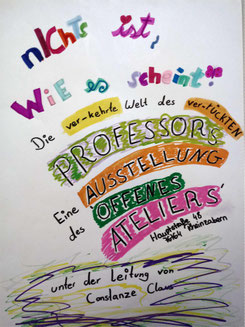 nichts ist,
wie es scheint...
Die ver-kehrte Welt des ver-rückten
PROFESSORS
Eine AUSSTELLUNG
des OFFENES
ATELIERS
Hauptstraße 48
Rheinzabern
unter der Leitung von
Constanze Claus